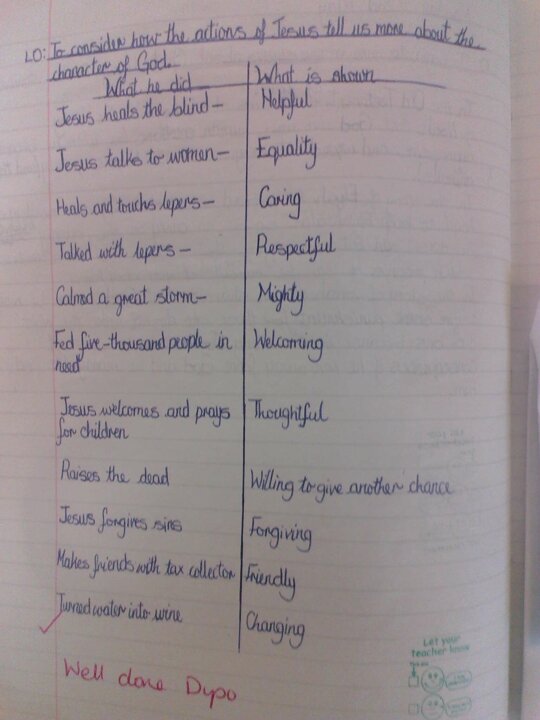 LO: To consider how the actions of Jesus tell us more about the
character of God.
What he did What is shown
Jesus heals the blind— Helpful
Jesus talks to women— Equality
Heals and touchs lepers— Caring
Talked with lepers— Respectful
Calmed a great storm— Mighty
Fed five-thousand people in Welcoming
need
Jesus welcomes and prays Thoughtful
for children
Raises the dead Willing to give another chance
Jesus forgives sins Forgiving
Makes friends with tax collector Friendly
Turned water into wine Changing
Well done Dypo
Let your
teacher know